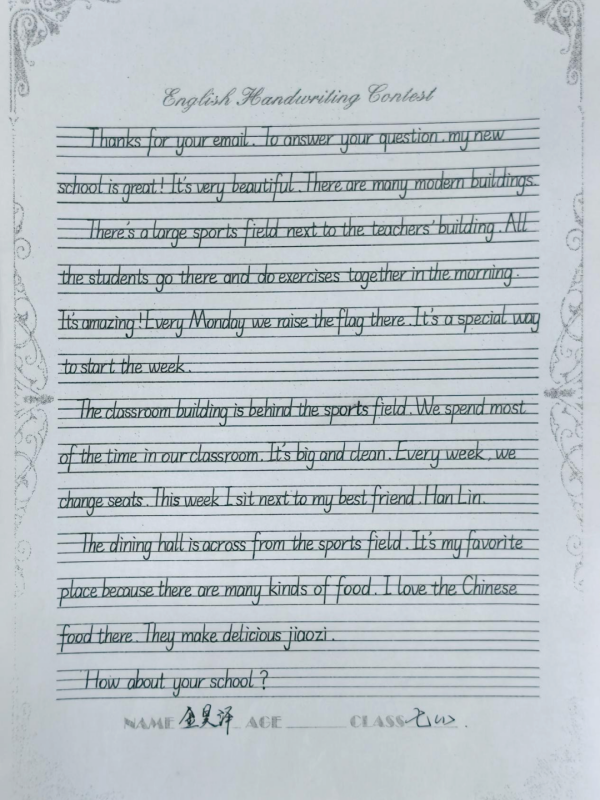 English Handwriting Contest
Thanks for your email. To answer your question, my new
school is great! It's very beautiful. There are many modern buildings.
There's a large sports field next to the teachers' building. All
the students go there and do exercises together in the morning.
It's amazing! Every Monday we raise the flag there. It's a special way
to start the week.
The classroom building is behind the sports field. We spend most
of the time in our classroom. It's big and clean. Every week, we
change seats. This week I sit next to my best friend, Han Lin.
The dining hall is across from the sports field. It's my favorite
place because there are many kinds of food. I love the Chinese
food there. They make delicious jiaozi.
How about your school?
NAME 金昊泽 AGE CLASS